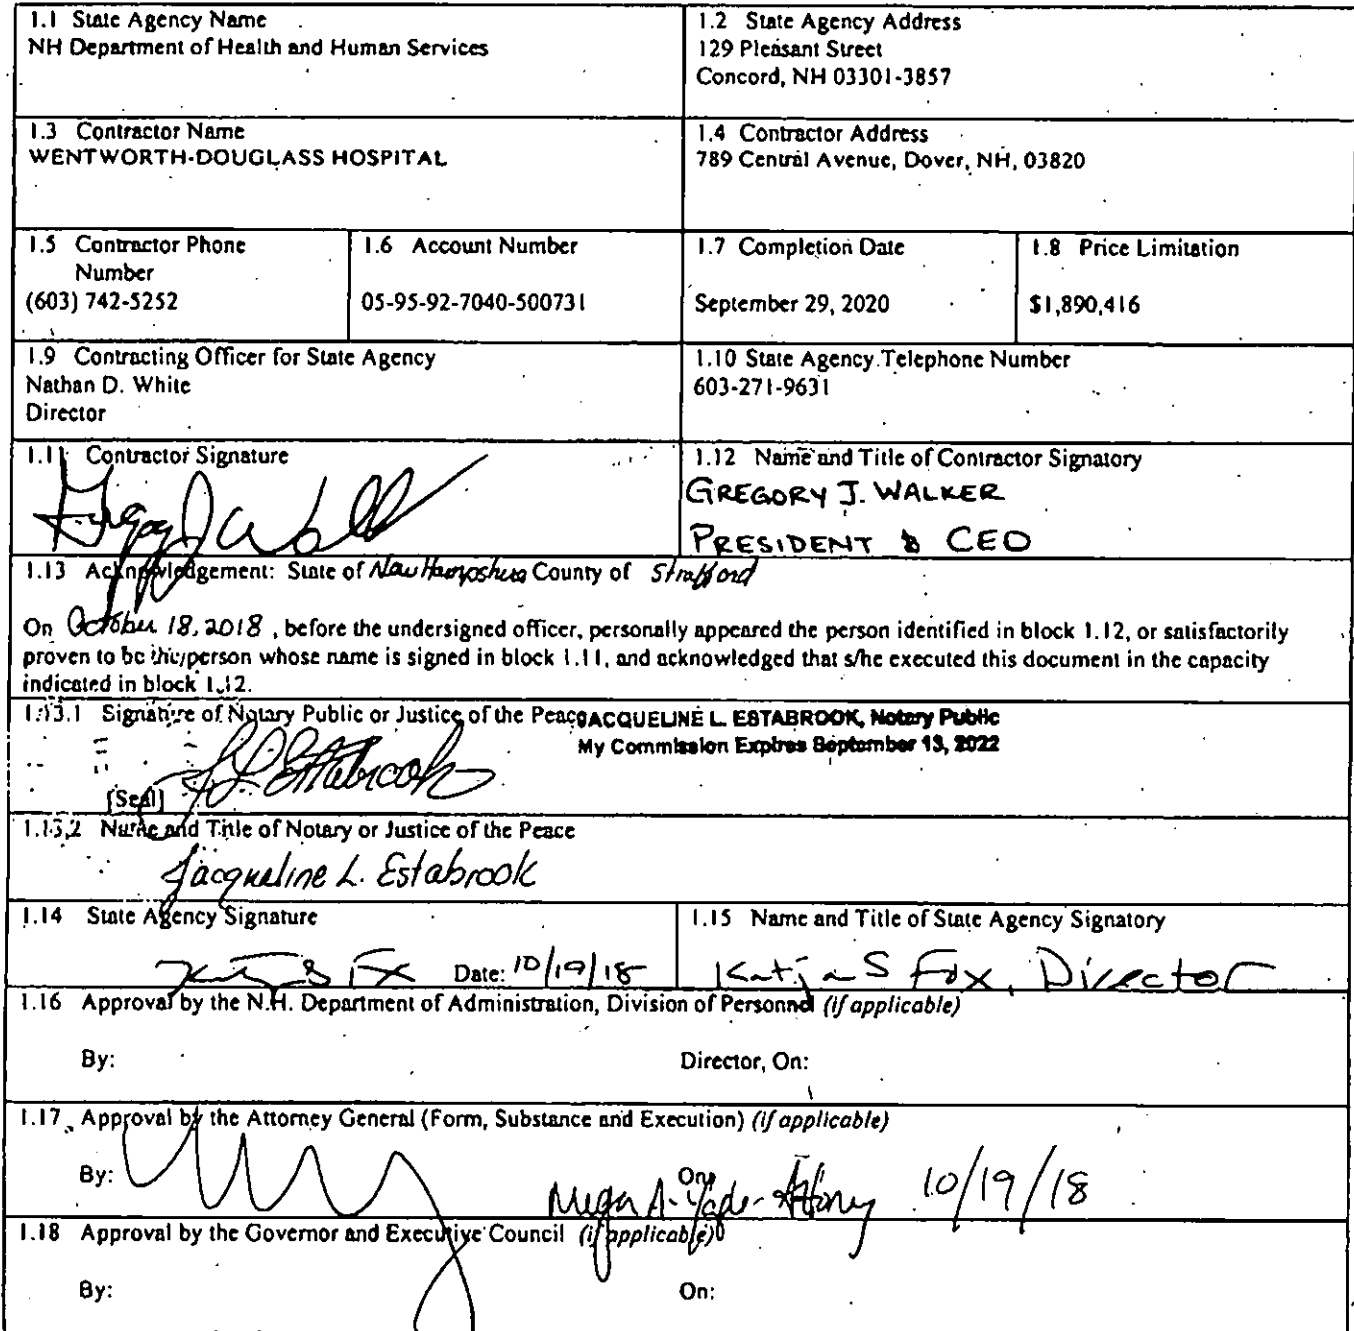 1.1 State Agency Name
NH Department of Health and Human Services
1.2 State Agency Address
129 Pleasant Street
Concord, NH 03301-3857
1.3 Contractor Name
WENTWORTH-DOUGLASS HOSPITAL
1.4 Contractor Address
789 Central Avenue, Dover, NH, 03820
1.5 Contractor Phone
Number
(603) 742-5252
1.6 Account Number
05-95-92-7040-500731
1.7 Completion Date
September 29, 2020
1.8 Price Limitation
$1,890,416
1.9 Contracting Officer for State Agency
Nathan D. White
Director
1.10 State Agency Telephone Number
603-271-9631
1.11 Contractor Signature
1.12 Name and Title of Contractor Signatory
GREGORY J. WALKER
PRESIDENT & CEO
1.13 Acknowledgement: State of New Hampshire County of Strafford
On October 18, 2018, before the undersigned officer, personally appeared the person identified in block 1.12, or satisfactorily
proven to be the person whose name is signed in block 1.11, and acknowledged that s/he executed this document in the capacity
indicated in block 1.12.
1.13.1 Signature of Notary Public or Justice of the Peace
JACQUELINE L. ESTABROOK, Notary Public
My Commission Expires September 13, 2022
[Seal]
1.13.2 Name and Title of Notary or Justice of the Peace
Jacqueline L. Estabrook
1.14 State Agency Signature
Date: 10/19/18
1.15 Name and Title of State Agency Signatory
Katja S Fox, Director
1.16 Approval by the N.H. Department of Administration, Division of Personnel (if applicable)
By:
Director, On:
1.17 Approval by the Attorney General (Form, Substance and Execution) (if applicable)
By:
On:
10/19/18
1.18 Approval by the Governor and Executive Council (if applicable)
By:
On: